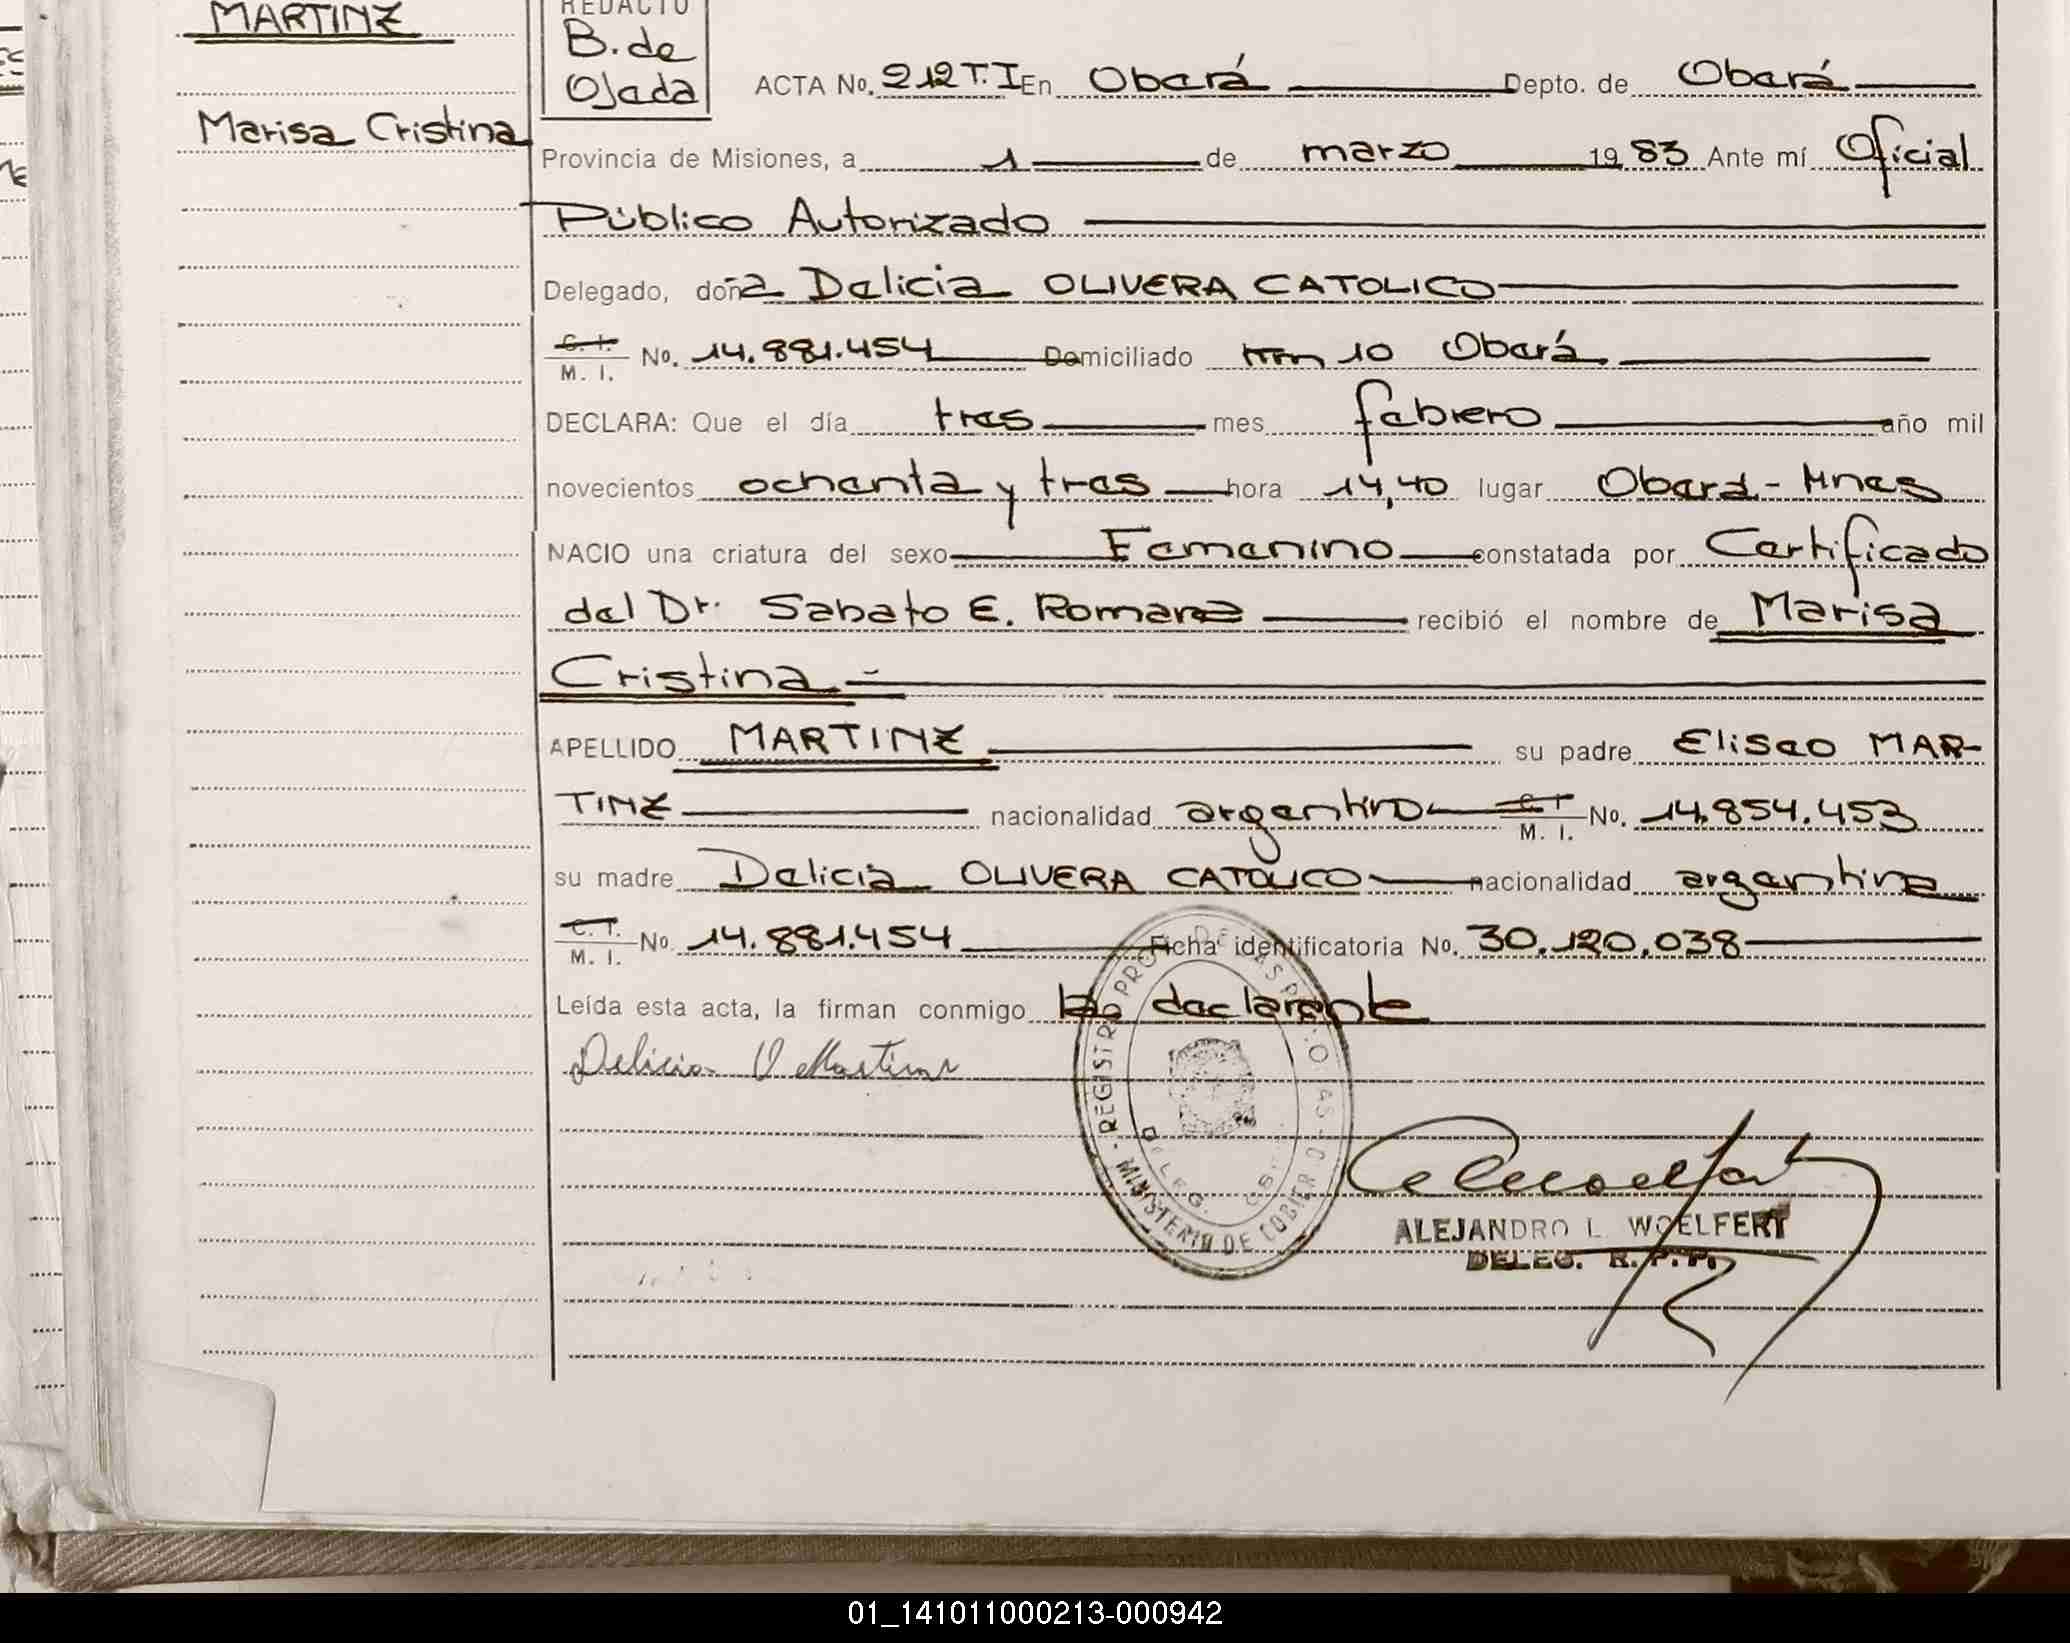 MARTINZ
Marisa Cristina
REDACTO
B. de
Ojeda
ACTA No. 212 T.I En Oberá Depto. de Oberá
Provincia de Misiones, a 1 de marzo 1983 Ante mí Oficial
Público Autorizado
Delegado, doña Delicia OLIVERA CATOLICO
C. I. / M. I. No. 14.881.454 Domiciliado Km 10 Oberá
DECLARA: Que el día tres mes febrero año mil
novecientos ochenta y tres hora 14,40 lugar Oberá - Mnes
NACIO una criatura del sexo Femenino constatada por Certificado
del Dr. Sabato E. Romero recibió el nombre de Marisa
Cristina =
APELLIDO MARTINZ su padre Eliseo MAR-
TINZ nacionalidad argentino C. I. / M. I. No. 14.854.453
su madre Delicia OLIVERA CATOLICO nacionalidad argentina
C. I. / M. I. No. 14.881.454 Ficha identificatoria No. 30.120.038
Leída esta acta, la firman conmigo la declarante
Delicia O Martinz
REGISTRO PROV. DE LAS PERSONAS - MINISTERIO DE GOBIERNO
DELEG. OBERA
ALEJANDRO L. WOELFERT
DELEG. R.P.P.
01_141011000213-000942